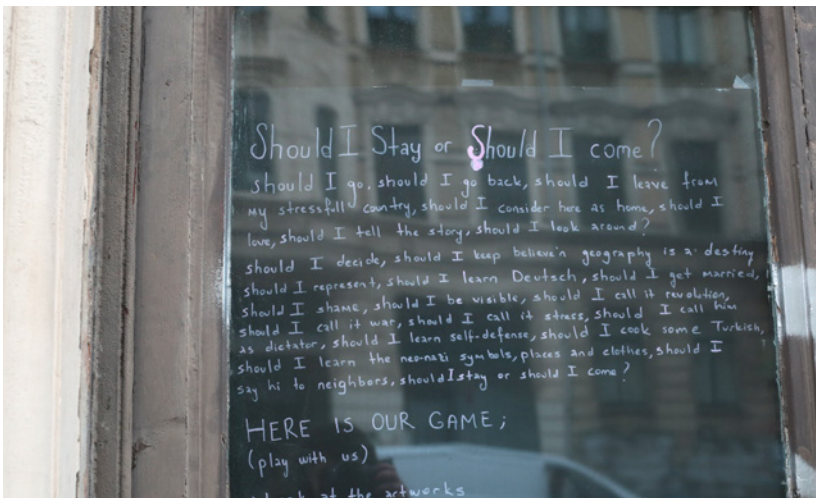 Should I Stay or Should I come?
should I go, should I go back, should I leave from
my stressfull country, should I consider here as home, should I
love, should I tell the story, should I look around?
should I decide, should I keep believe'n geography is a destiny
should I represent, should I learn Deutsch, should I get married,
should I shame, should I be visible, should I call it revolution,
should I call it war, should I call it stress, should I call him
as dictator, should I learn self-defense, should I cook some Turkish,
should I learn the neo-nazi symbols, places and clothes, should I
say hi to neighbors, should I stay or should I come?
HERE IS OUR GAME;
(play with us)
look at the artworks